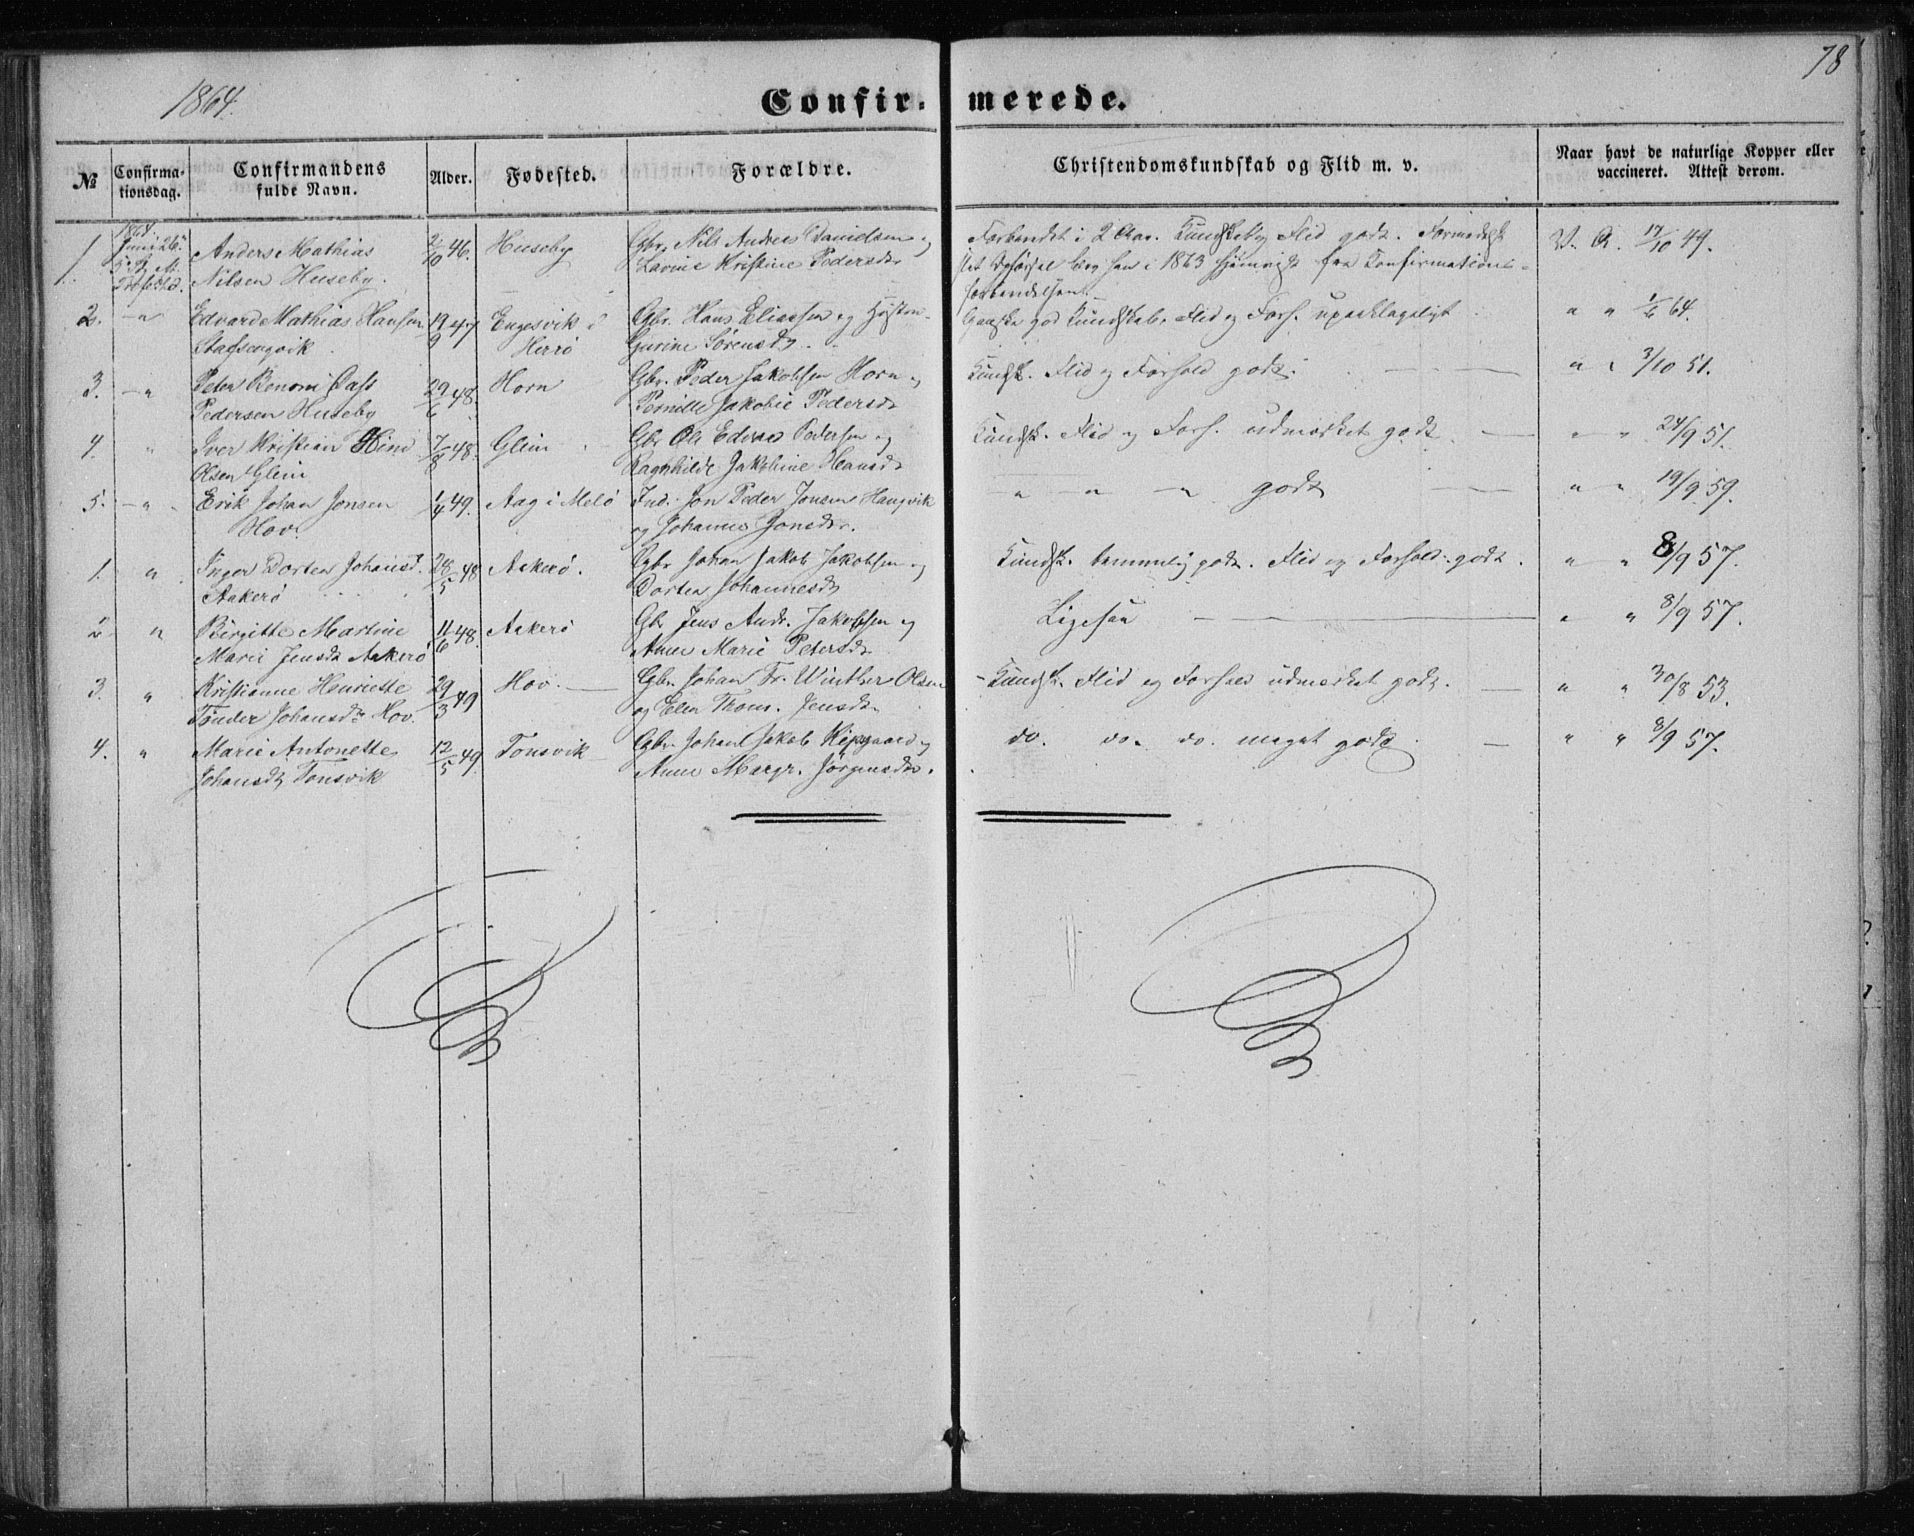 78
1864.
Confir- merede.
№ Confirma-tionsdag. Confirmandens fulde Navn. Alder. Fødested. Forældre. Christendomskundskab og Flid m. v. Naar havt de naturlige Kopper eller vaccineret. Attest derom.
1. 1864. Juni 26. Anders Mathias 2/10 46. Huseby Gbr. Nils Andreas Danielsen og Forberedet i 2 Aar. Kundskab og Flid godt. V. A. 17/10 49.
Nilsen Huseby. Lavine Kristine Pedersdr han i 1863 fra Confirmations-
forberedelsen.
2. " Edvard Mathias Hansen 19/9 47 Engesvik i Gbr. Hans Eliassen og Ganske god Kundskab, Flid og Forh. upaaklageligt " " 1/6 64.
Herrö Gurine Sörensdr.
3. " Peter Benoni Dass 29/6 48. Horn Gbr. Peder Jakobsen Horn og Kundsk. Flid og Forhold godt. " " 3/10 51.
Pedersen Huseby Pernille Jakobie Pedersdr
4. " Iver Kristian Hind 7/8 48. Glein Gbr Ole Edvard Pedersen og Kundsk. Flid og Forh. udmærket godt. " " 24/9 51.
Olsen Glein Ragnhilde Jakobine Hansdr
5. " Erik Johan Jonsen 1/4 49. Aag i Melö Ind. Jon Peder Jonsen Haugvik " " " godt " " 19/9 59.
Hov. og Johanna Jonsdr.
1. " Inger Dortea Johansd. 28/5 48 Aakerö. Gbr Johan Jakob Jakobsen og Kundsk. temmelig godt. Flid og Forhold godt. " " 8/9 57.
Aakerö Dortea Johannesdr
2 " Birgitte Martine 11/6 48. Aakerö Gbr Jens Andr. Jakobsen og Ligesaa " " 8/9 57.
Marie Jensdr Aakerö Anne Marie Petersdr
3. " Kristianne Henriette 29/3 49 Hov. Gbr. Johan Fr. Winther Olsen Kundsk. Flid og Forhold udmærket godt. " " 30/8 53.
Tönder Johansdr Hov. og Elen Thom. Jensdr
4. " Marie Antonette 12/5 49. Tonsvik Gbr. Johan Jakob og do. do. do. meget godt " " 8/9 57.
Johansdr Tonsvik Anne Margr. Jörgensdr.